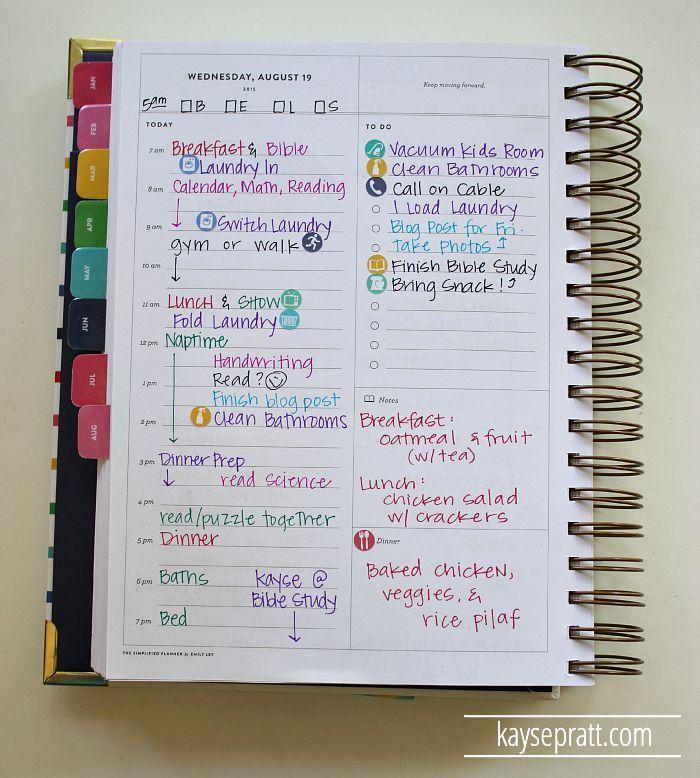 WEDNESDAY, AUGUST 19
2015
Keep moving forward.
5am □B □E □L □S
JAN
FEB
MAR
APR
MAY
JUN
JUL
AUG
TODAY
7 am Breakfast & Bible
Laundry In
8 am Calendar, Math, Reading
9 am Switch Laundry
gym or walk
10 am
11 am Lunch & Show
Fold Laundry
12 pm Naptime
Handwriting
1 pm Read?
Finish blog post
2 pm Clean Bathrooms
3 pm Dinner Prep
read science
4 pm
read/puzzle together
5 pm Dinner
6 pm Baths kayse @
Bible Study
7 pm Bed
TO DO
Vacuum Kids Room
Clean Bathrooms
Call on Cable
1 Load Laundry
Blog Post for Fri.
Take Photos ↑
Finish Bible Study
Bring Snack! ↑
Notes
Breakfast:
oatmeal & fruit
(w/tea)
Lunch:
chicken salad
w/ crackers
Dinner
Baked chicken,
veggies, &
rice pilaf
THE SIMPLIFIED PLANNER by EMILY LEY
kaysepratt.com